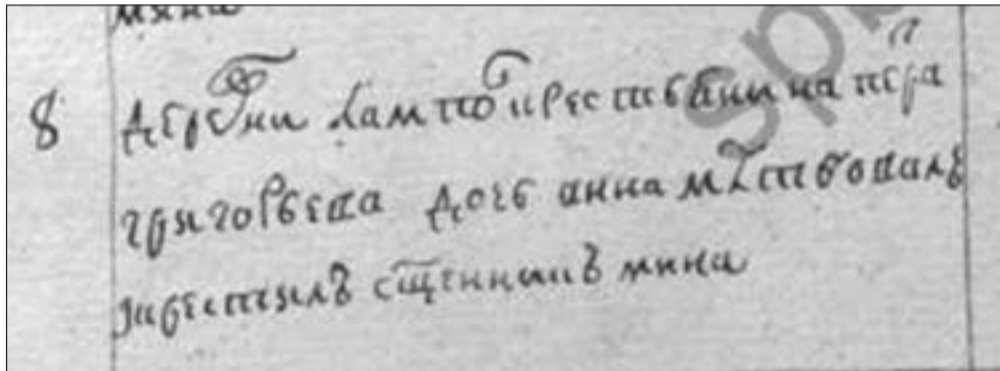 мина
8 деревни Лампо крестьянина петра
григорьева дочь анна мѣтвовалъ
и крестилъ сщенникъ мина